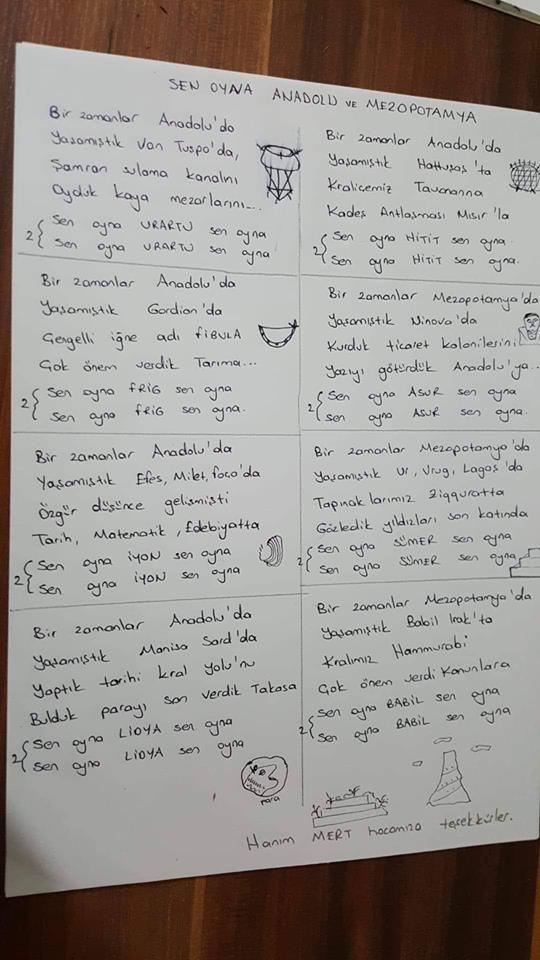 SEN OYNA ANADOLU VE MEZOPOTAMYA
Bir zamanlar Anadolu'da
Yaşamıştık Van Tuşpa'da,
Şamran sulama kanalını
Oyduk kaya mezarlarını...
2{ Sen oyna URARTU sen oyna
Sen oyna URARTU sen oyna
Bir zamanlar Anadolu'da
Yaşamıştık Hattuşaş'ta
Kraliçemiz Tavananna
Kadeş Antlaşması Mısır'la
2{ Sen oyna HİTİT sen oyna.
Sen oyna HİTİT sen oyna.
Bir zamanlar Anadolu'da
Yaşamıştık Gordion'da
Çengelli iğne adı FİBULA
Çok önem verdik Tarıma...
2{ Sen oyna FRİG sen oyna
Sen oyna FRİG sen oyna.
Bir zamanlar Mezopotamya'da
Yaşamıştık Ninova'da
Kurduk ticaret kolonilerini
Yazıyı götürdük Anadolu'ya...
2{ Sen oyna ASUR sen oyna
Sen oyna ASUR sen oyna.
Bir zamanlar Anadolu'da
Yaşamıştık Efes, Milet, foça'da
Özgür düşünce gelişmişti
Tarih, Matematik, Edebiyatta
2{ Sen oyna İYON sen oyna
Sen oyna İYON sen oyna
Bir zamanlar Mezopotamya'da
Yaşamıştık Ur, Urug, Lagaş'da
Tapınaklarımız Ziqquratta
Gözledik yıldızları son katında
2{ Sen oyna SÜMER sen oyna
Sen oyna SÜMER sen oyna
Bir zamanlar Anadolu'da
Yaşamıştık Manisa Sard'da
Yaptık tarihi kral yolu'nu
Bulduk parayı son verdik Takasa
2{ Sen oyna LİDYA sen oyna
Sen oyna LİDYA sen oyna
para
Bir zamanlar Mezopotamya'da
Yaşamıştık Babil Irak'ta
Kralımız Hammurabi
Çok önem verdi Kanunlara
2{ Sen oyna BABİL sen oyna
Sen oyna BABİL sen oyna
Hanım MERT hocamıza teşekkürler.